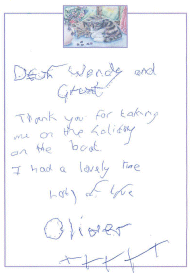 Dear Wendy and
Grant
Thank you for taking
me on the holiday
on the boat
I had a lovely time
Lots of love
Oliver
xxxxx